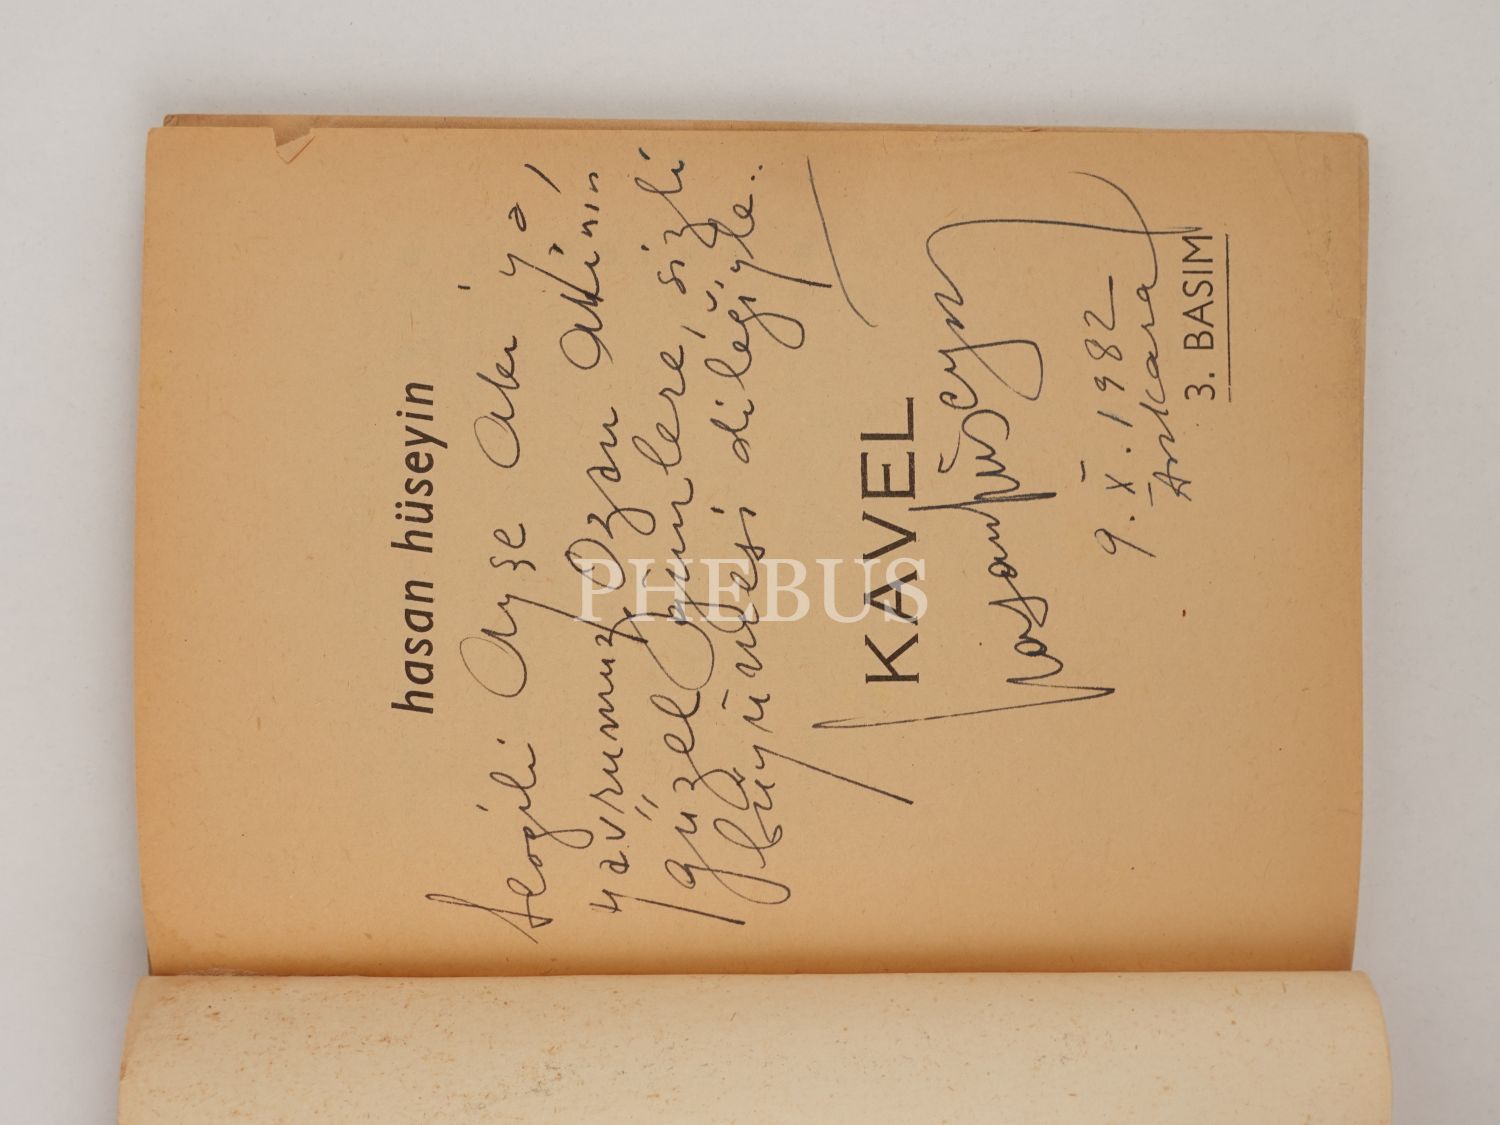 hasan hüseyin
Sevgili Ayşe Akı'ya,
yavrumuz Ozan Akının
güzel günlere, sizli
büyümesi dileğiyle..
KAVEL
hasanhüseyin
9.X.1982
Ankara
3. BASIM
PHEBUS